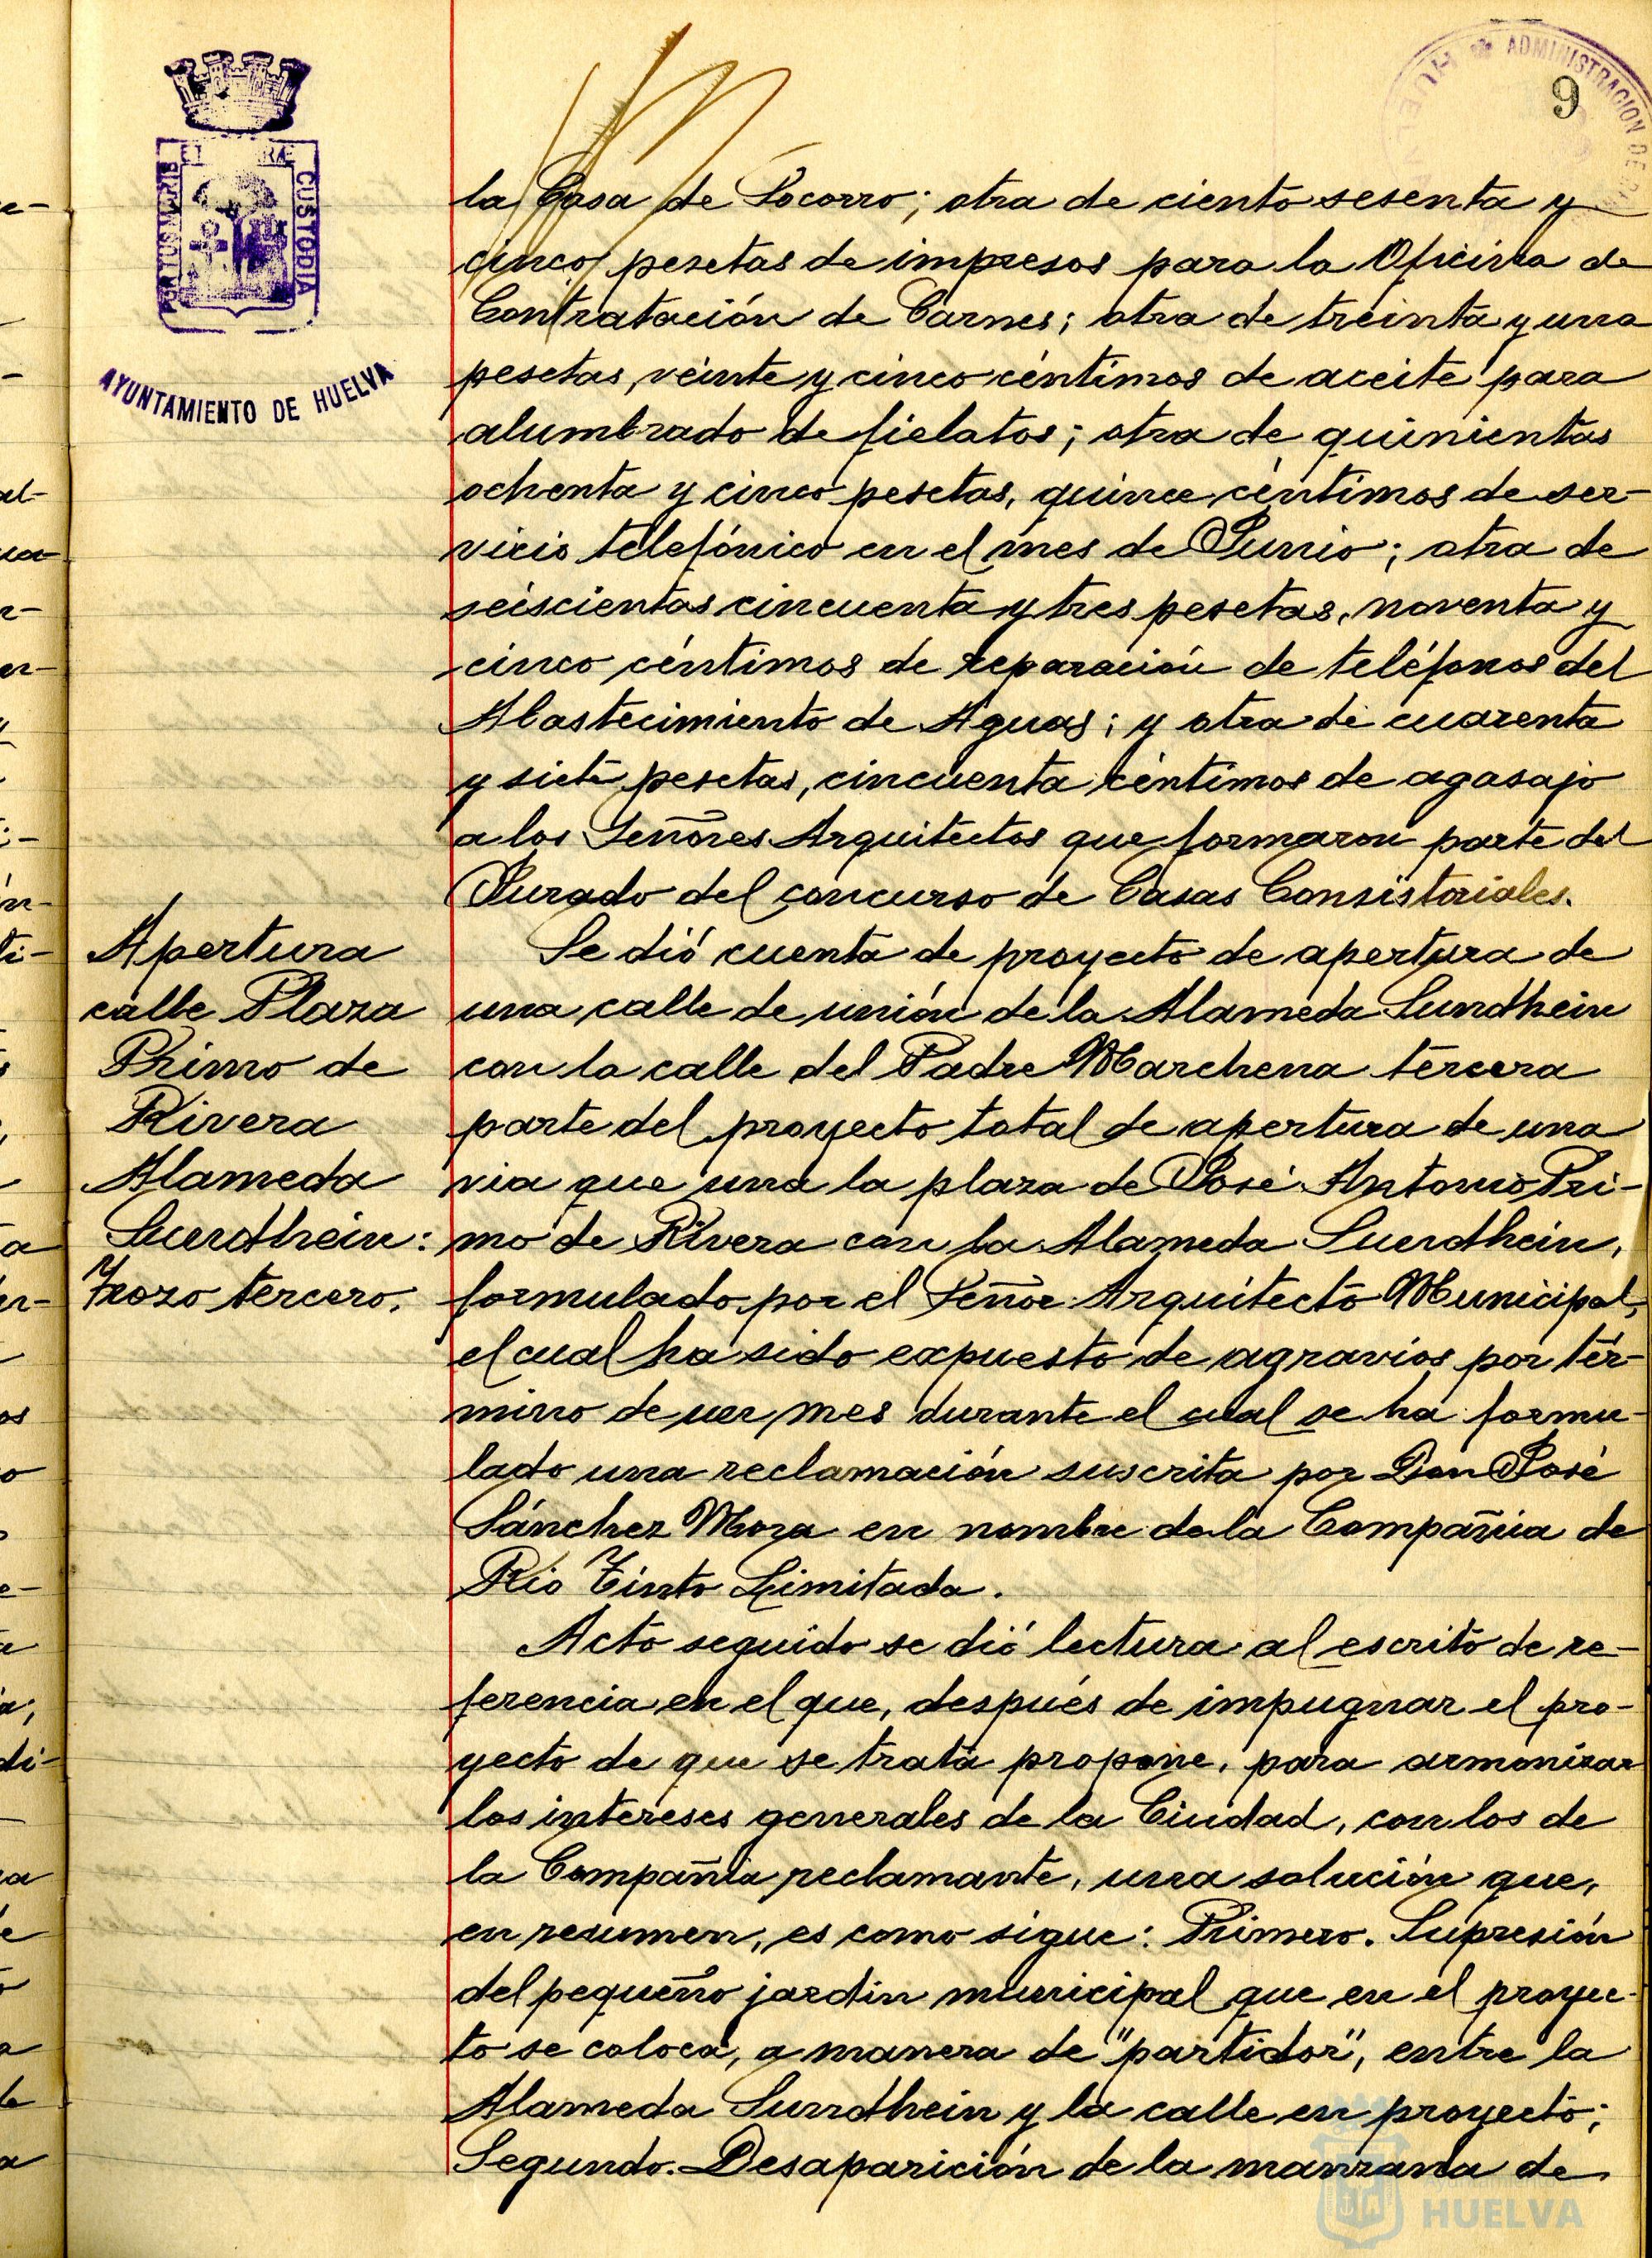 ADMINISTRACION DE
HUELVA
9
PORTUS MARIS
CUSTODIA
AYUNTAMIENTO DE HUELVA
la Casa de Socorro; otra de ciento sesenta y
cinco pesetas de impresos para la Oficina de
Contratación de Carnes; otra de treinta y una
pesetas, veinte y cinco céntimos de aceite para
alumbrado de fielatos; otra de quinientas
ochenta y cinco pesetas, quince céntimos de ser-
vicio telefónico en el mes de Junio; otra de
seiscientas cincuenta y tres pesetas, noventa y
cinco céntimos de reparación de teléfonos del
Abastecimiento de Aguas; y otra de cuarenta
y siete pesetas, cincuenta céntimos de agasajo
a los Señores Arquitectos que formaron parte del
Jurado del concurso de Casas Consistoriales.
Apertura
calle Plaza
Primo de
Rivera
Alameda
Sundhein:
Trozo tercero.
Se dió cuenta de proyecto de apertura de
una calle de unión de la Alameda Sundhein
con la calle del Padre Marchena tercera
parte del proyecto total de apertura de una
via que una la plaza de José Antonio Pri-
mo de Rivera con la Alameda Sundhein,
formulado por el Señor Arquitecto Municipal,
el cual ha sido expuesto de agravios por tér-
mino de un mes durante el cual se ha formu-
lado una reclamación suscrita por Don José
Sánchez Mora en nombre de la Compañia de
Rio Tinto Limitada.
Acto seguido se dió lectura al escrito de re-
ferencia en el que, después de impugnar el pro-
yecto de que se trata propone, para armonizar
los intereses generales de la Ciudad, con los de
la Compañia reclamante, una solución que,
en resumen, es como sigue: Primero. Supresión
del pequeño jardin municipal que en el proyec-
to se coloca, a manera de "partidor", entre la
Alameda Sundhein y la calle en proyecto;
Segundo. Desaparición de la manzana de
Ayuntamiento de
HUELVA